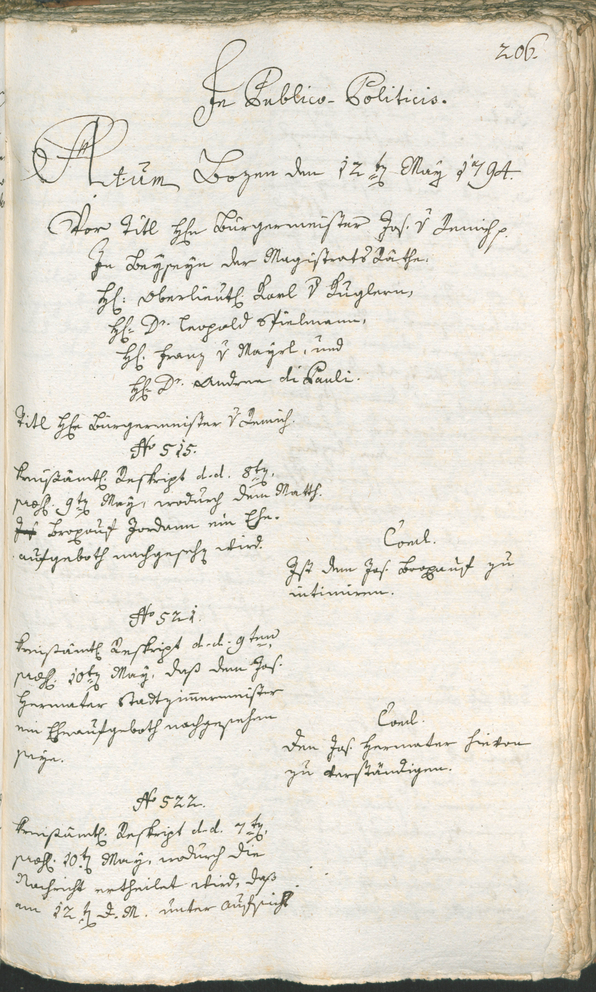 206.
In Publico-Politicis.
Actum Bozen den 12 ten May 1794.
Vor Titl Hhn Bürgermeister Jos. v Remich p.
In Beyseyn der Magistrats Räthe.
HE: Oberlieut. Karl v Kuglern,
HE: Dr. Leopold Spielmann,
HE: Franz v Mayrl, und
HE: Dr. Andrea di Pauli.
Titl Hhn Bürgermeister v Remich.
No 515.
Kreisämtl. Reskript d.d. 8ten,
præs. 9ten May, wodurch dem Matth.
Jordann ein Ehe-
aufgeboth nachgesehen wird.
Concl.
Ist dem Jos. zu
intimiren.
No 521.
Kreisämtl. Reskript d.d. 9ten
præs. 10ten May, daß dem Jos.
Hermater Stadtzimmermeister
ein Eheaufgeboth nachgesehen
seye.
Concl.
Den Jos. Hermater hievon
zu verständigen.
No 522.
Kreisämtl. Reskript d.d. 7ten,
præs. 10ten May, wodurch die
Nachricht ertheilet wird, daß
am 12 ten d.M. unter Aufsicht